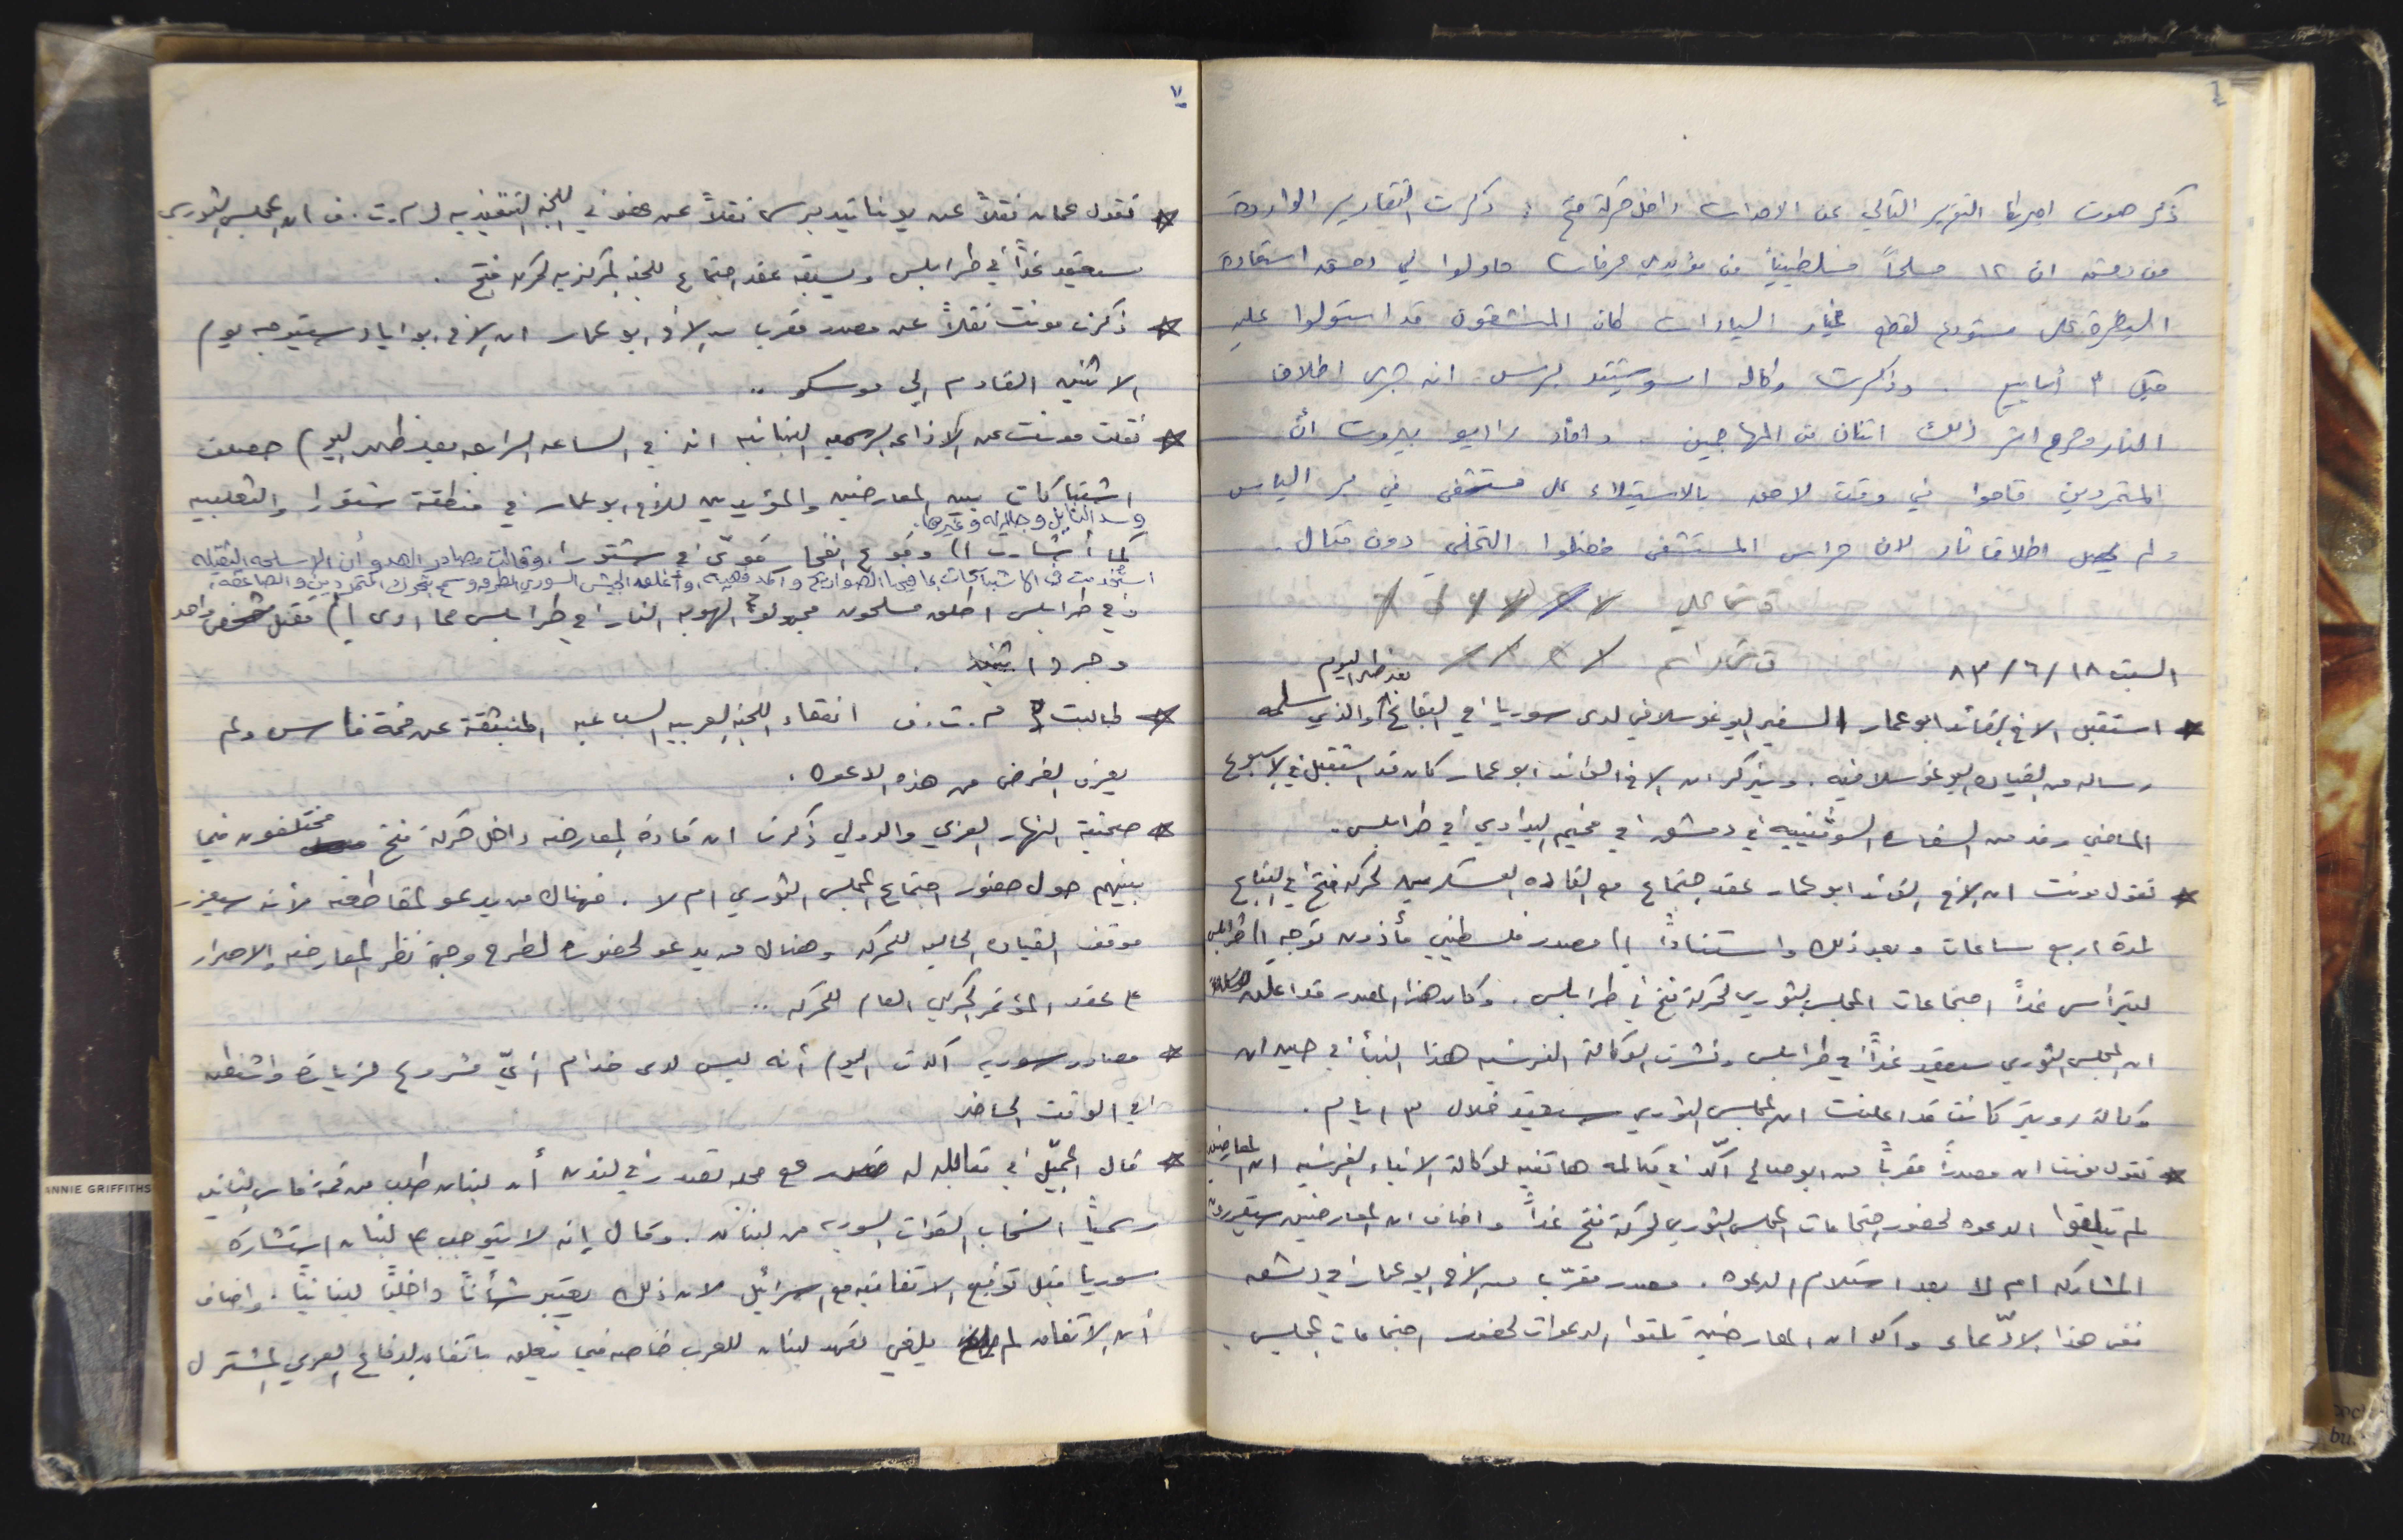 ٦
ذكر صوت امريكا التقرير التالي عن الاحداث داخل حركة فتح : ذكرت التقارير الواردة
من دمشق ان ١٢ مسلحاً فلسطينياً من مؤيدي عرفات حاولوا في دمشق استعادة
السيطرة على مستودع لقطع غيار السيارات كان المنشقون قد استولوا عليه
قبل ٣ أسابيع . وذكرت وكالة اسوشيتد برس انه جرى اطلاق
النار وجرح اثر ذلك اثنان من المهاجمين . وافاد راديو بيروت أن
المتمردين قاموا في وقت لاحق بالاستيلاء على مستشفى في بر الياس
ولم يحصل اطلاق نار لان حراس المستشفى فضلوا التخلي دون قتال .
السبت ١٨ / ٦ / ٨٣
بعد ظهر اليوم
* استقبل الاخ القائد ابو عمار السفير اليوغوسلافي لدى سوريا في البقاع والذي سلمه
رساله من القياده اليوغوسلافيه . ويذكر ان الاخ القائد ابو عمار كان قد استقبل في الاسبوع
الماضي وفد من السفاره السوفيتيه في دمشق في مخيم البداوي في طرابلس .
* تقول مونت ان الاخ القائد ابو عمار عقد اجتماع مع القاده العسكريين لحركة فتح في البقاع
لمدة اربع ساعات وبعد ذلك واستناداً الى مصدر فلسطيني مأذون توجه الى طرابلس
ليترأس غداً اجتماعات المجلس الثوري لحركة فتح في طرابلس . وكان هذا المصدر قد اعلن
ان المجلس الثوري سيعقد غداً في طرابلس ونشرت الوكالة الفرنسيه هذا النبأ في حين ان
وكالة رويتر كانت قد اعلنت ان المجلس الثوري سيعقد خلال ٣ ايام .
* تقول مونت ان مصدراً مقرباً من ابو صالح أكّد في مكالمه هاتفيه لوكالة الانباء الفرنسيه ان المعارضين
لم يتلقوا الدعوه لحضور اجتماعات المجلس الثوري لحركة فتح غداً واضاف ان المعارضين سيقررون
المشاركه ام لا بعد استلام الدعوه . مصدر مقرّب من الاخ ابو عمار في دمشق
نفى هذا الادّعاء واكد ان المعارضين تلقوا الدعوات لحضور اجتماعات المجلس .
٧
* تقول عمان نقلاً عن يونايتد برس نقلاً عن عضو في اللجنه التنفيذيه لـ م.ت.ف ان المجلس الثوري
سيعقد غداً في طرابلس ويسبقه عقد اجتماع للجنه المركزيه لحركة فتح .
* ذكرت مونت نقلاً عن مصدر مقرب من الاخ ابو عمار ان الاخ ابو اياد سيتوجه يوم
الاثنين القادم الى موسكو ..
* نقلت مونت عن الاذاعه الرسميه اللبنانيه انه في الساعه الرابعه بعد ظهر اليوم حصلت
اشتباكات بين المعارضين والمؤيدين للاخ ابو عمار في منطقة شتورا والثعلبيه
وسعدنايل وجلالا وغيرها .
كما أشارت الى وقوع انفجار قويّ في شتورا، وقالت مصادر العدو أن الاسلحه الثقيله
استُخدمت في الاشتباكات بما فيها الصواريخ والمدفعيه، وأغلق الجيش السوري الطرق وسمح بتحرك المتمردين والصاعقه .
وفي طرابلس اطلق مسلحون مجهولو الهويه النار في طرابلس مما ادى الى مقتل شخص واحد
وجرح اثنين .
* طالبت م.ت.ف انعقاد اللجنه العربيه السباعيه المنبثقة عن قمة فاس ولم
يعرف الغرض من هذه الدعوه .
* صحيفة النهار العربي والدولي ذكرت ان قادة المعارضه داخل حركة فتح مختلفون فيما
بينهم حول حضور اجتماع المجلس الثوري ام لا . فهناك من يدعو لمقاطعته لأنه سيعزز
موقف القياده الحاليه للحركه وهناك من يدعو لحضوره لطرح وجهة نظر المعارضه والاصرار
على عقد المؤتمر الحركي العام للحركه ..
* مصادر سوريه اكدت اليوم أنه ليس لدى خدام أيّ مشروع لزيارة واشنطن
في الوقت الحاضر
* قال الجميّل في مقابله له مع مجله تصدر في لندن أن لبنان طلب من قمة فاس الثانيه
رسمياً انسحاب القوات السوريه من لبنان . وقال إنه لا يتوجب على لبنان استشارة
سوريا قبل توقيع الاتفاقيه مع اسرائيل لان ذلك يعتبر شأناً داخلياً لبنانياً . واضاف
أن الاتفاق لم يلغي تعهد لبنان للعرب خاصه فيما يتعلق باتفاق الدفاع العربي المشترك
ANNIE GRIFFITHS